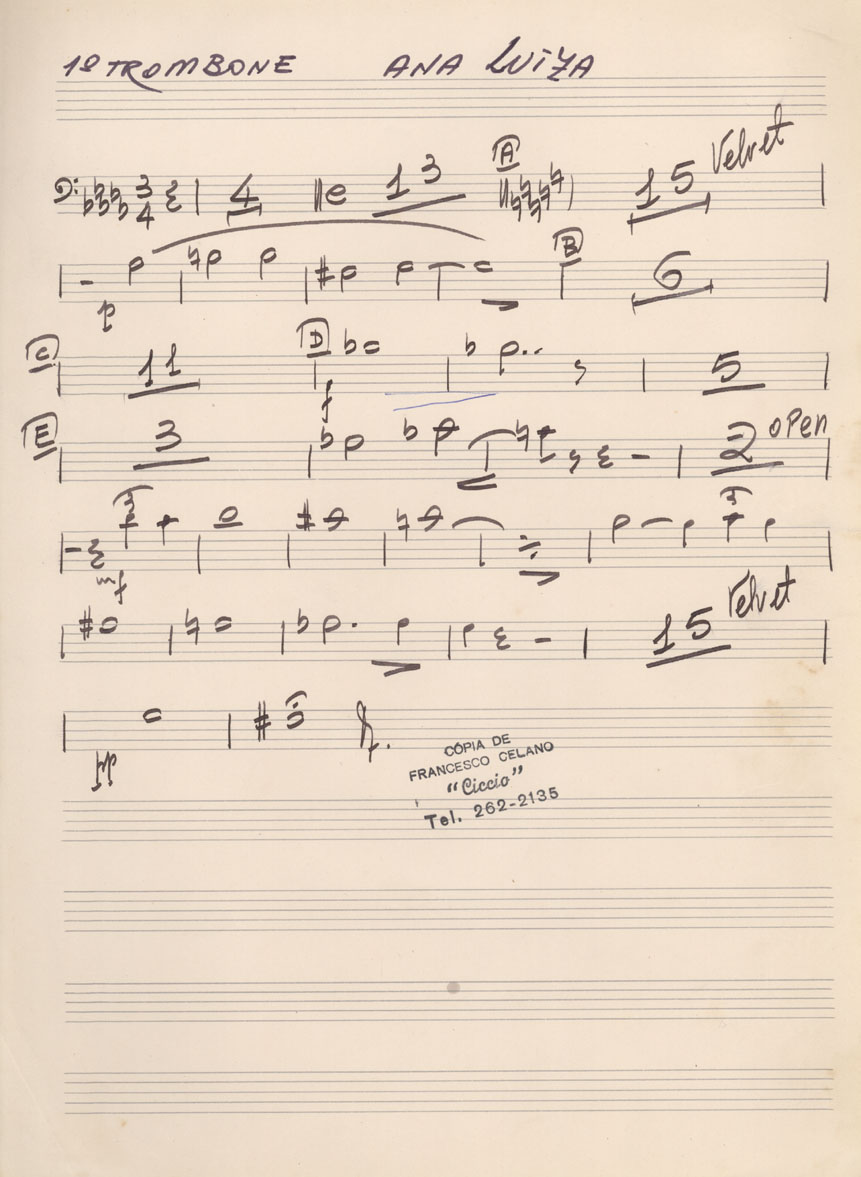 1º TROMBONE ANA LUIZA
3 4 4 13 A 15 Velvet
p B 6
C 11 D f 5
E 3 2 open
3 mf 3
15 Velvet
pp
CÓPIA DE
FRANCESCO CELANO
"Ciccio"
Tel. 262-2135